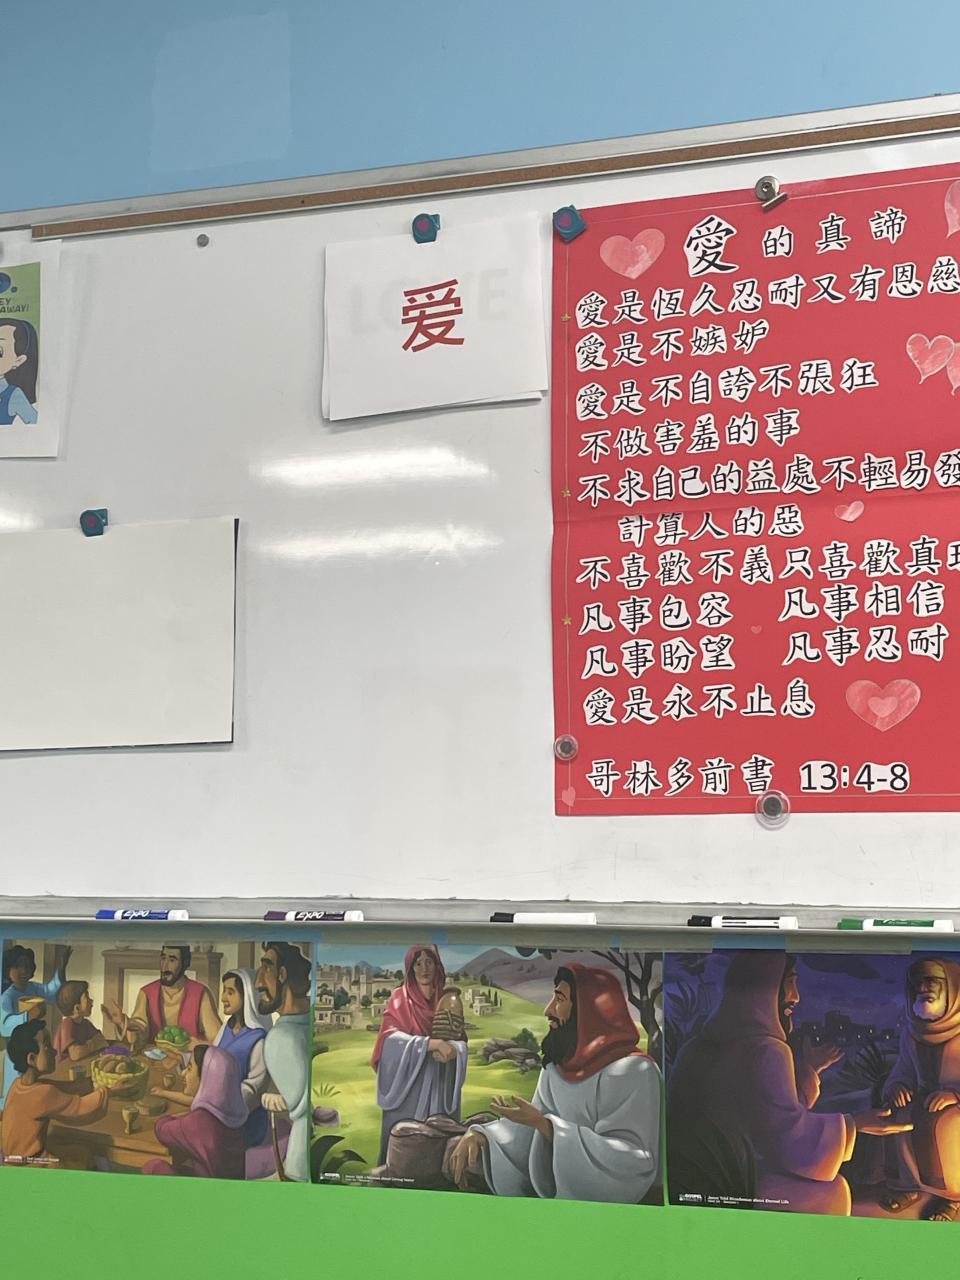 EY
AWAY!
LOVE
爱
愛的真諦
愛是恆久忍耐又有恩慈
愛是不嫉妒
愛是不自誇不張狂
不做害羞的事
不求自己的益處不輕易發
計算人的惡
不喜歡不義只喜歡真
凡事包容 凡事相信
凡事盼望 凡事忍耐
愛是永不止息
哥林多前書 13:4-8
EXPO
EXPO
Jesus Told Nicodemus about Eternal Life